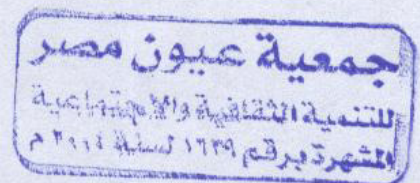 جمعية عيون مصر
للتنمية الثقافية والاجتماعية
المشهرة برقم ١٦٣٩ لسنة ٢٠٠٤ م